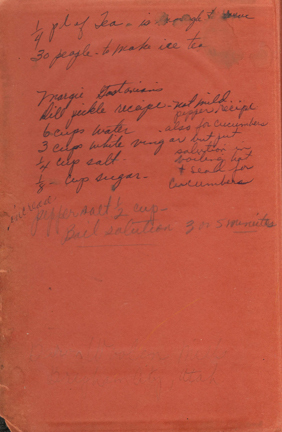 1/4 lb of Tea - is enough to serve
30 people - to make ice tea
Margie
Dill pickle recipe - not mild
pepper recipe
6 cups water
also for cucumbers
3 cups white vinegar but put
solution in
1/4 cup salt
boiling hot
& seal for
cup sugar
cucumbers
pepper salt 1/2 cup
Boil solution 3 or 5 minutes